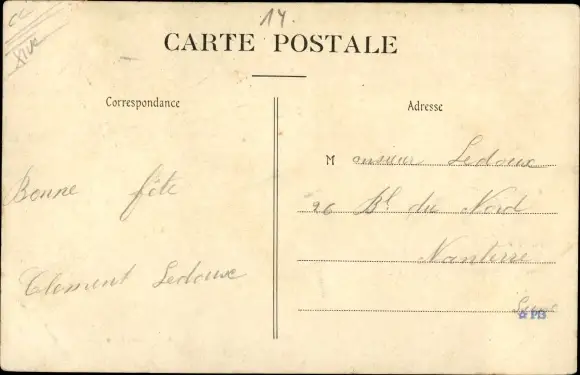 14.
CC
XIVe
CARTE POSTALE
Correspondance
Adresse
Bonne fête
Clement Ledoux
Monsieur Ledoux
26 Bd du Nord
Nanterre
Seine
☆ PB